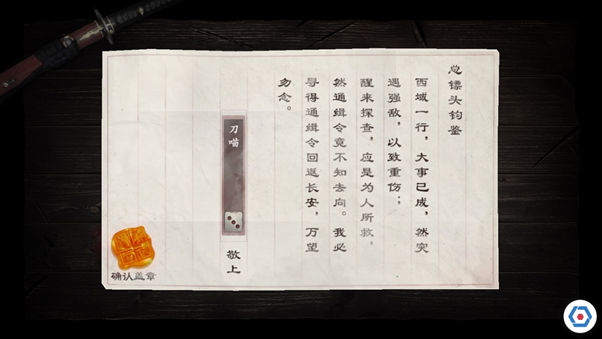 总镖头钧鉴
西域一行，大事已成，然突
遇强敌，以致重伤；
醒来探查，应是为人所救，
然通缉令竟不知去向。我必
寻得通缉令回返长安，万望
勿念。
刀喵
敬上
确认盖章